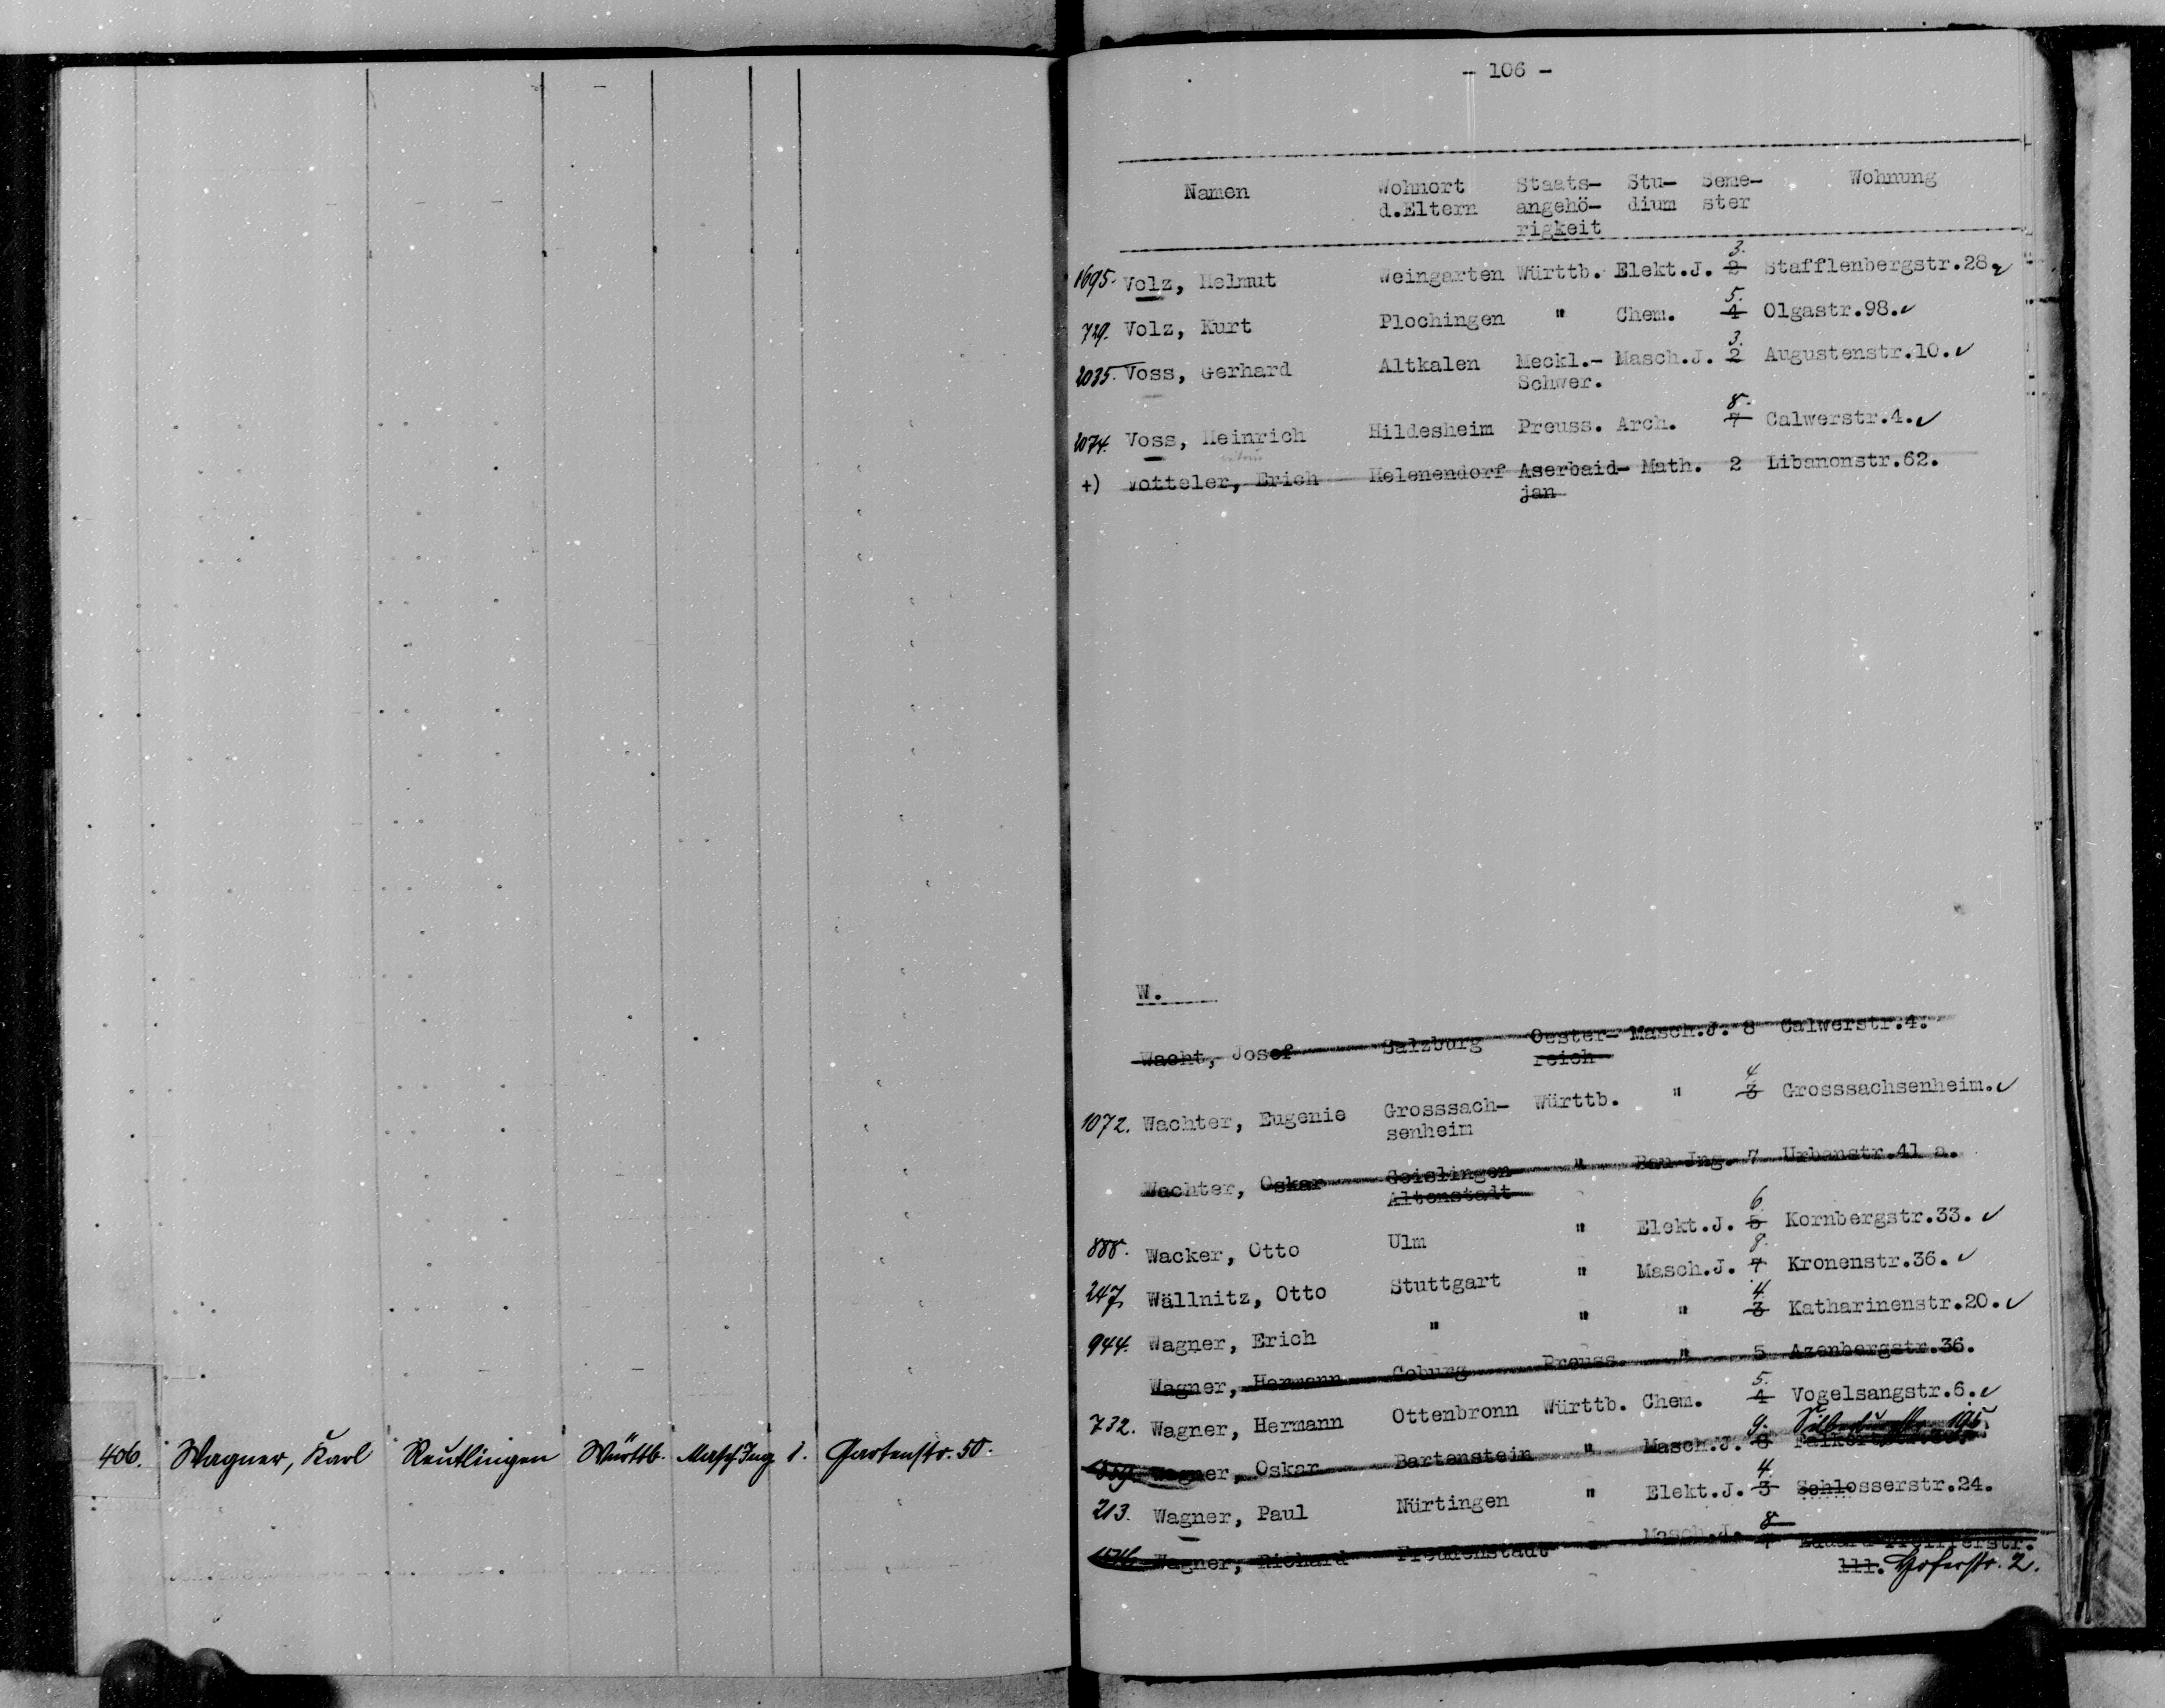 406. Wagner, Karl Reutlingen Württb. Masch Ing 1. Gartenstr. 50.
- 106 -
Namen Wohnort Staats- Stu- Seme- Wohnung
d.Eltern angehö- dium ster
rigkeit
3.
1695. Volz, Helmut Weingarten Württb. Elekt.J. 2 Stafflenbergstr.28.
5.
729. Volz, Kurt Plochingen " Chem. 4 Olgastr.98.
3.
2035. Voss, Gerhard Altkalen Meckl.- Masch.J. 2 Augustenstr.10.
Schwer.
8.
2074. Voss, Heinrich Hildesheim Preuss. Arch. 7 Calwerstr.4.
+) Votteler, Erich Helenendorf Aserbaid- Math. 2 Libanonstr.62.
jan
W.
Wacht, Josef Salzburg Oester- Masch.J. 8 Calwerstr.4.
reich
4
1072. Wachter, Eugenie Grosssach- Württb. " 3 Grosssachsenheim.
senheim
Wachter, Oskar Geislingen " Bau-Ing. 7 Urbanstr.41 a.
Altenstadt
6
888. Wacker, Otto Ulm " Elekt.J. 5 Kornbergstr.33.
8.
247. Wällnitz, Otto Stuttgart " Masch.J. 7 Kronenstr.36.
4
944. Wagner, Erich " " " 3 Katharinenstr.20.
Wagner, Hermann Coburg Preuss. " 5 Azenbergstr.36.
5.
732. Wagner, Hermann Ottenbronn Württb. Chem. 4 Vogelsangstr.6.
9.
Wagner, Oskar Bartenstein " Masch.J. 8
4.
213. Wagner, Paul Nürtingen " Elekt.J. 3 Schlosserstr.24.
8
Wagner, Richard Freudenstadt " Masch.J. 7 Eduard Pfeifferstr.
111. Hoferstr. 2.